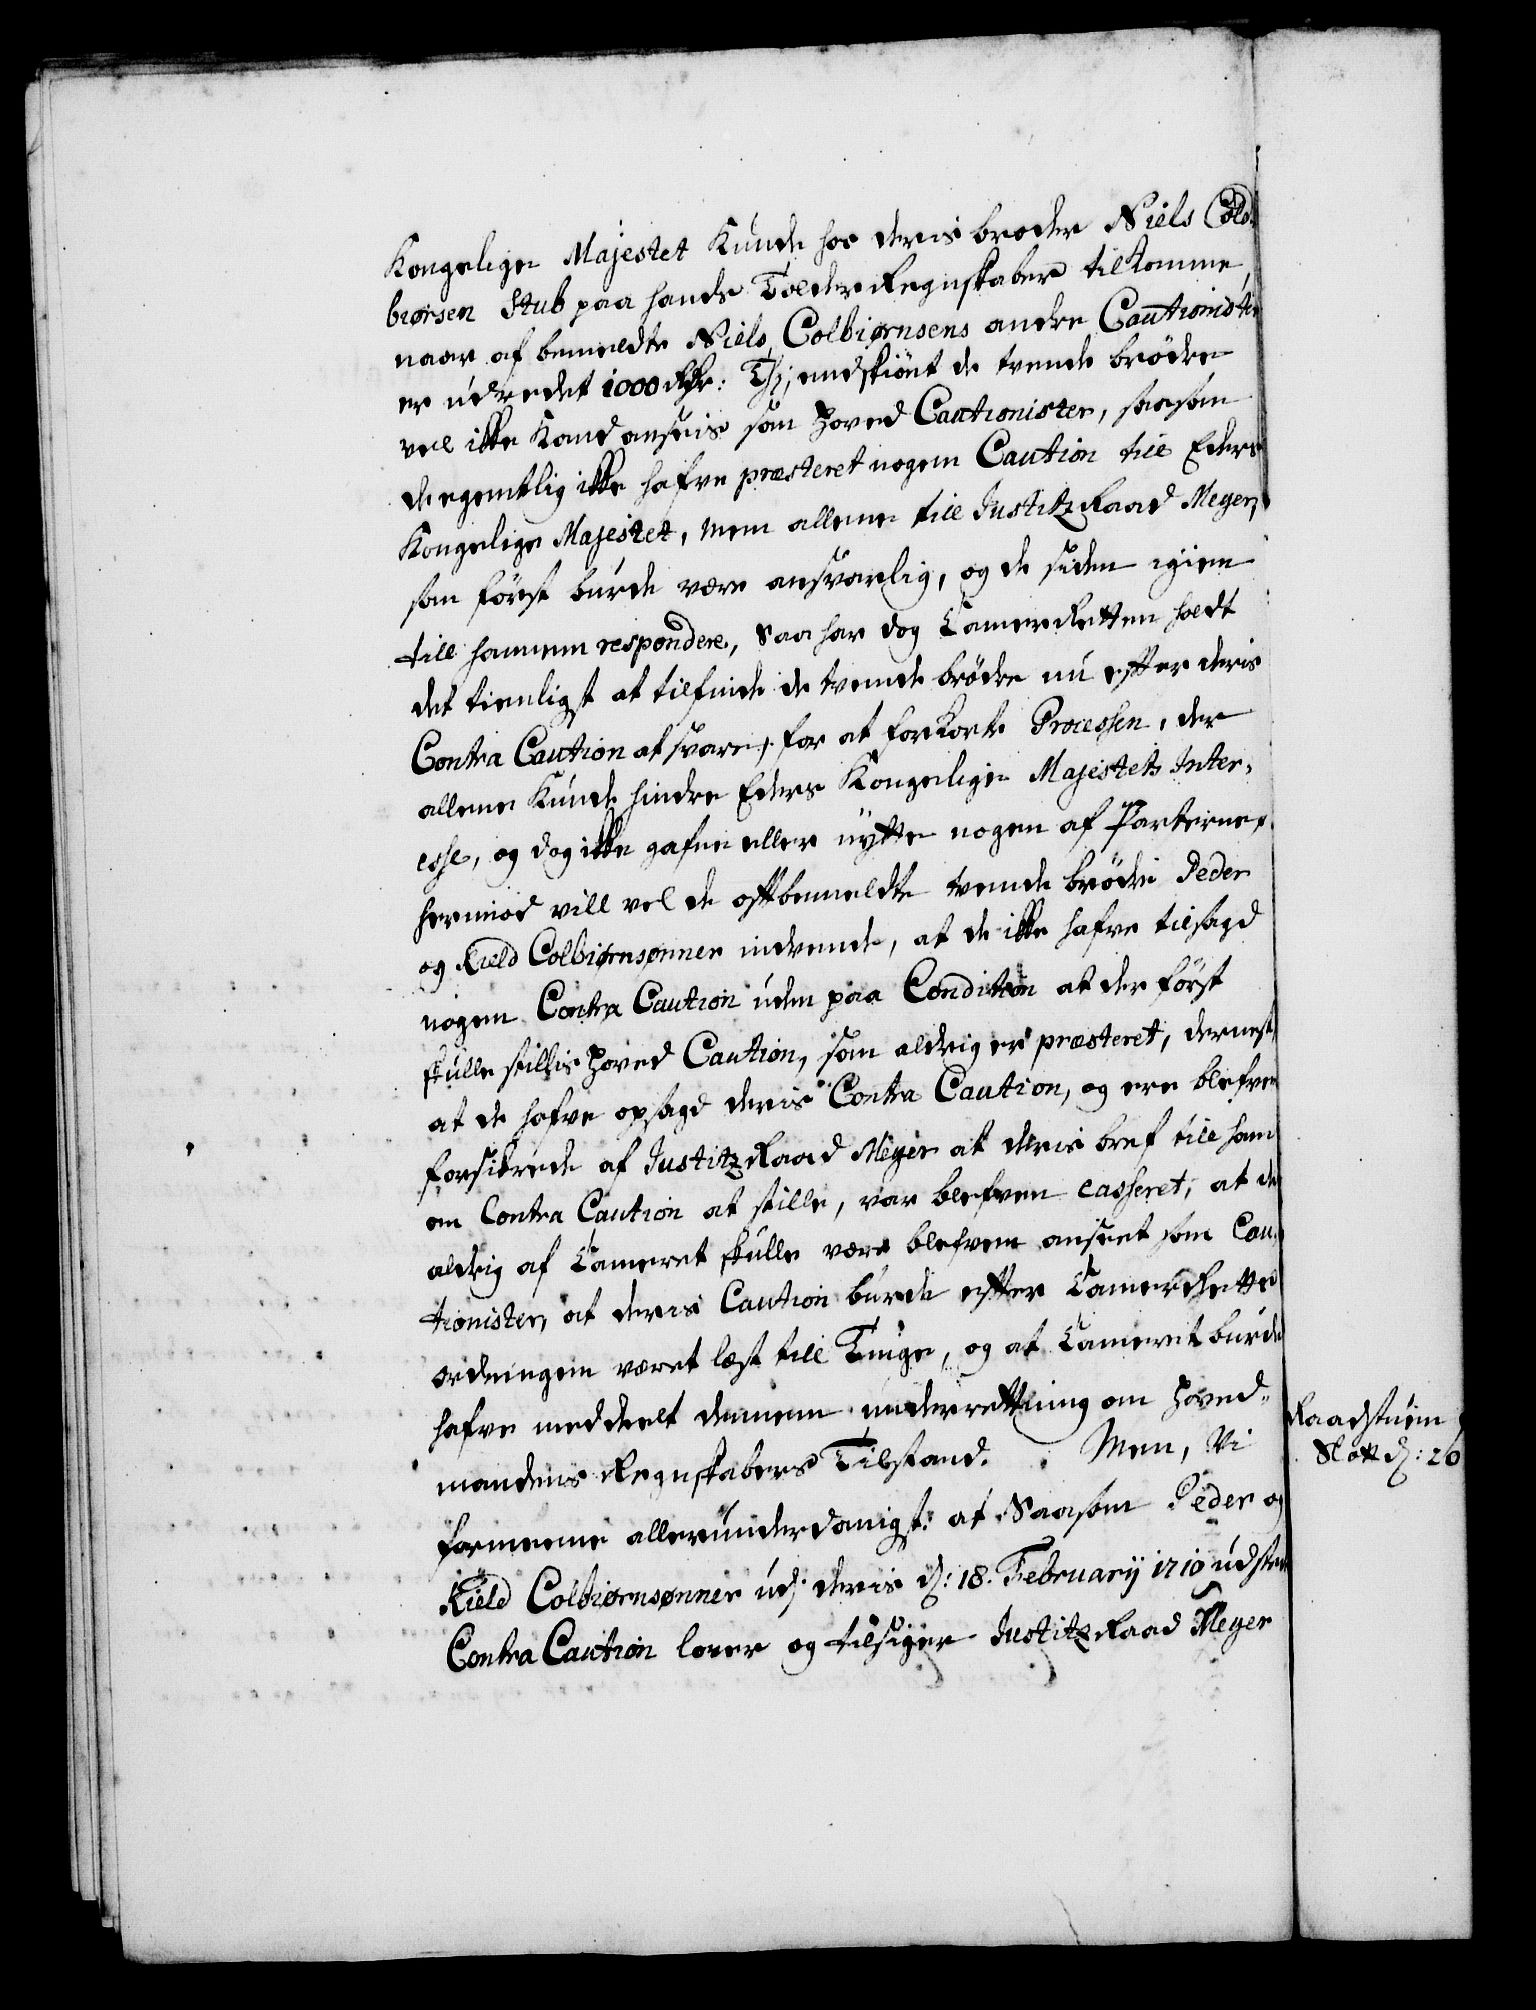 Kongelige Majestet kunde hos deris broder Niels Col¬
biørsen Stub paa hands Tolder Regnskaber tilkomme,
naar af bemeldte Niels Colbiørnsens andre Cautionister
er udredet 1000 Rdr: Thj, endskiønt de tvende brødre
vel ikke kand ansees som Hoved Cautionister, saasom
de egentlig ikke hafve præsteret nogen Caution till Eders
Kongelige Majestet, men allene till Justitz Raad Meyer,
som først burde være ansvarlig, og de siden igien
till hannem respondere, Saa har dog Cammer Retten holdt
det tienligst at tilfinde de tvende brødre nu efter deris
Contra Caution at svare, for at forkorte Processen, der
allene kunde hindre Eders Kongelige Majestets Inter¬
esse, og dog ikke gafne eller nytte nogen af Parterne,
hermod vill vel de oftbemeldte tvende brødre Peder
og Kield Colbiørnsønner indvende, at de ikke hafve tilsagd
nogen Contra Caution uden paa Condition at der først
skulle stillis Hoved Caution, som aldrig er præsteret, dernest
at de hafve opsagd deris Contra Caution, og ere blefven
forsikrede af Justitz Raad Meyer at deris bref till ham
om Contra Caution at stille, var blefven casseret, at de
aldrig af Cameret skulle være blefven anseet som Cau¬
tionister, at deris Caution burde efter Cammer Retts
ordningen været læst till Tinge, og at Cameret burde
hafve meddeelt dennem underrettning om Hoved¬
mandens Regnskabers Tilstand. Men, Vi
formeene allerunderdanigst: at Saasom Peder og
Kield Colbiørnsønner udj deris d: 18. Februarij 1710 udsted
Contra Caution lover og tilsiger Justitz Raad Meyer
Raadstuen
Slott d: 26